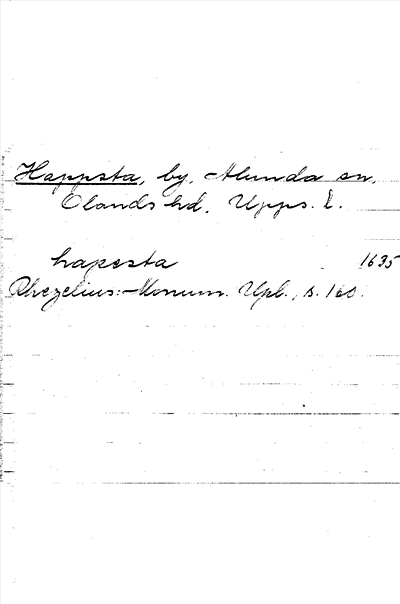 Happsta, by, Alunda sn,
Olands hd, Upps. l.
hapesta 1635
Rhezelius: Monum. Upl., s. 160.